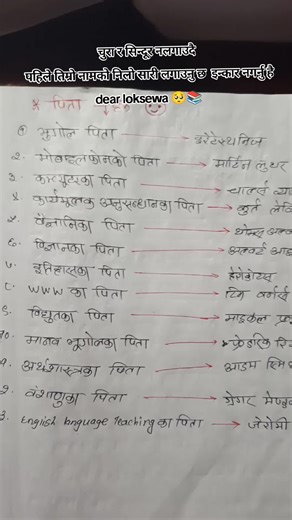 चुरा र सिन्दूर नलगाउदै
पहिले तिम्रो नामको निलो सारी लगाउनु छ इन्कार नगर्नु है
dear loksewa 🥺📚
* पिता
① भूगोल पिता → इरेटेस्थनिज
२. मोबाइलफोनको पिता → मार्टिन लुथर
३. कम्प्युटरका पिता → चार्ल्स व्या
४. कार्यमूलक अनुसन्धानका पिता → कुर्त लेवि
५. पिता → थोम्स अल्
६. विज्ञानका पिता → अल्वर्ट आइ
७. इतिहासका पिता → हेरोडोटस
८. WWW का पिता → टिम बर्नर्स
९. विद्युतका पिता → माइकल फ्
१०. मानव भूगोलका पिता → फ्रेडरिक रि
१. अर्थशास्त्रका पिता → आडम स्मि
२. वंशाणुका पिता → ग्रेगर मेण्ड
३. English language Teaching का पिता → जेरोमी